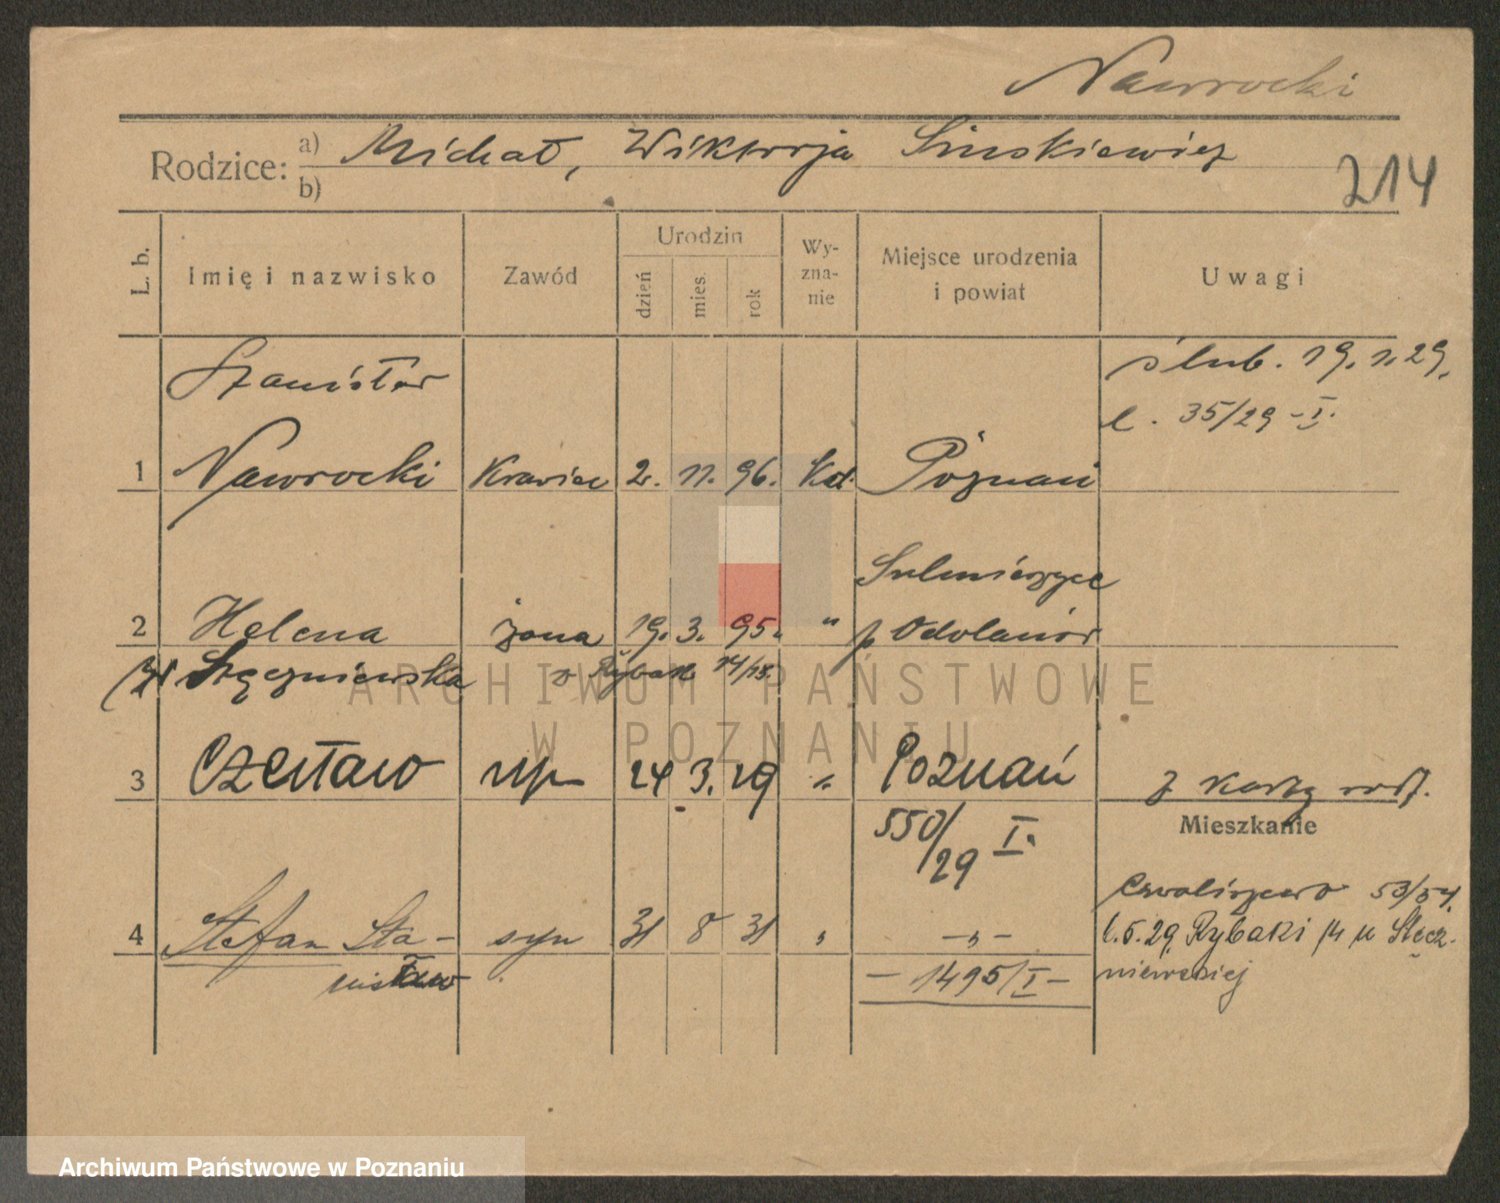 Nawrocki
Rodzice: a) Michał, Wiktorja Sinskiewicz
b)
214
L. b. Imię i nazwisko Zawód Urodzin dzień mies. rok Wy-zna-nie Miejsce urodzenia i powiat Uwagi
Stanisław ślub. 19. 1. 29.
l. 35/29 - I.
1 Nawrocki Krawiec 2. 11. 96. Kat. Poznań
Sulmierzyce
2 Helena żona 19. 3. 95. " p Odolanów
Stęczniewska z Rybak 14/18.
3 Czesław syn 24 3. 29 " Poznań z karty rodz.
550/29 I.
Mieszkanie
Chwaliszewo 53/54.
4 Stefan Sta- syn 31 8 31 " -"- 1.5.29 Rybaki 14 u Stęcz-
nisław - 1495/I - niewskiej
ARCHIWUM PAŃSTWOWE
W POZNANIU
Archiwum Państwowe w Poznaniu